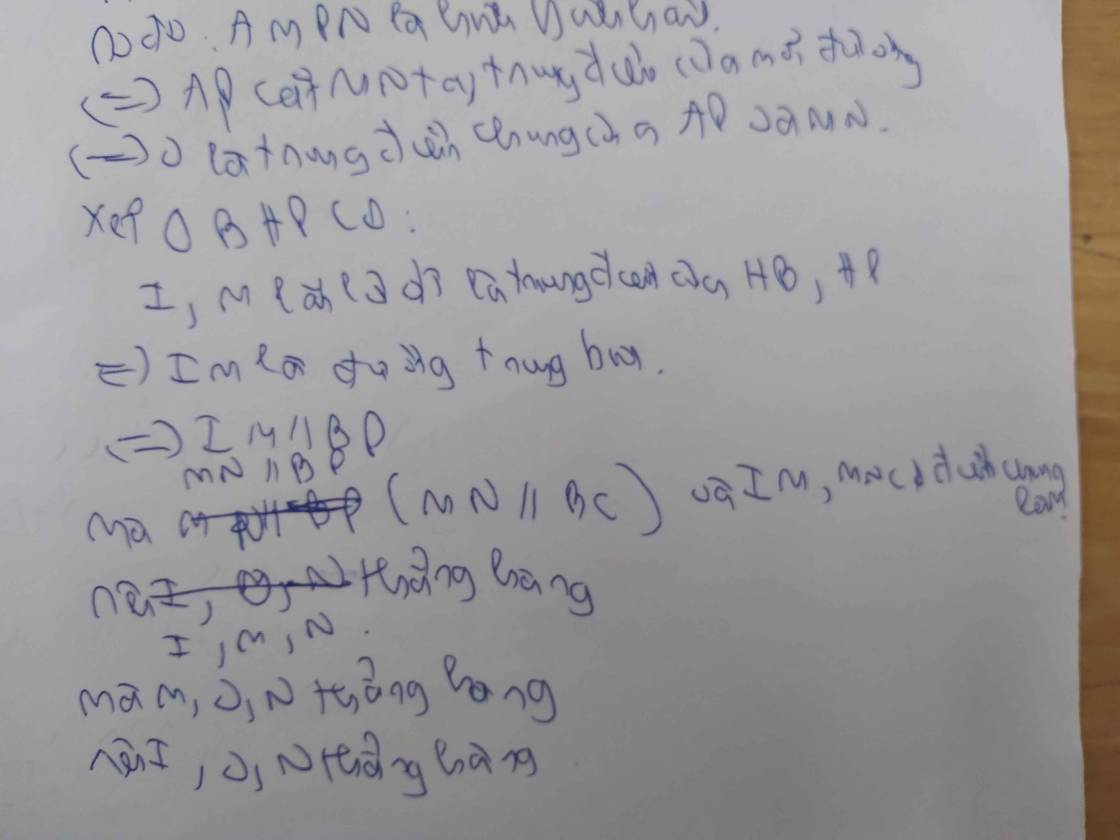 Do đó AMPN là hình bình hành.
(=) AP cắt MN tại trung điểm của mỗi đường
(=) O là trung điểm chung của AP và MN.
Xét BHP CÓ:
I, M lần lượt là trung điểm của HB, HP
=) IM là đường trung bình.
(=) IM // BP
MN // BP
mà MN // BP (MN // BC) và IM, MN có điểm chung
là M
nên I, O, N thẳng hàng
I, M, N.
mà M, O, N thẳng hàng
nên I, O, N thẳng hàng